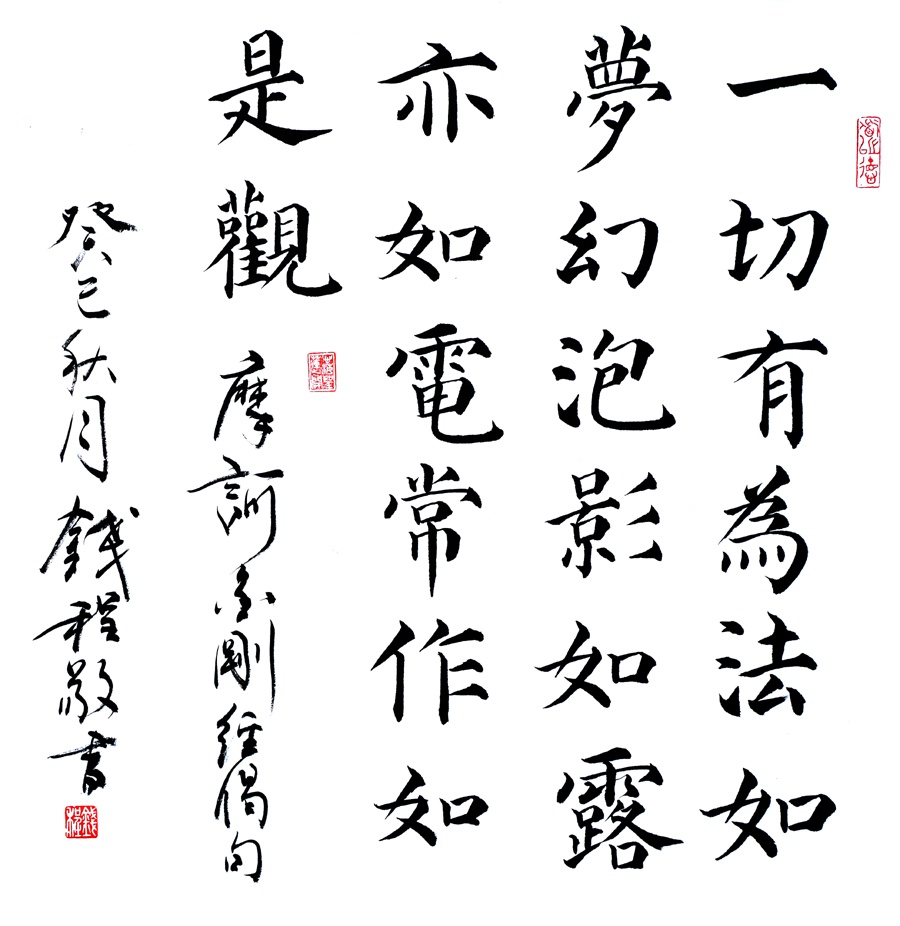 一切有為法如
夢幻泡影如露
亦如電常作如
是觀
摩訶金剛經偈句
癸巳秋月錢程敬書
錢程